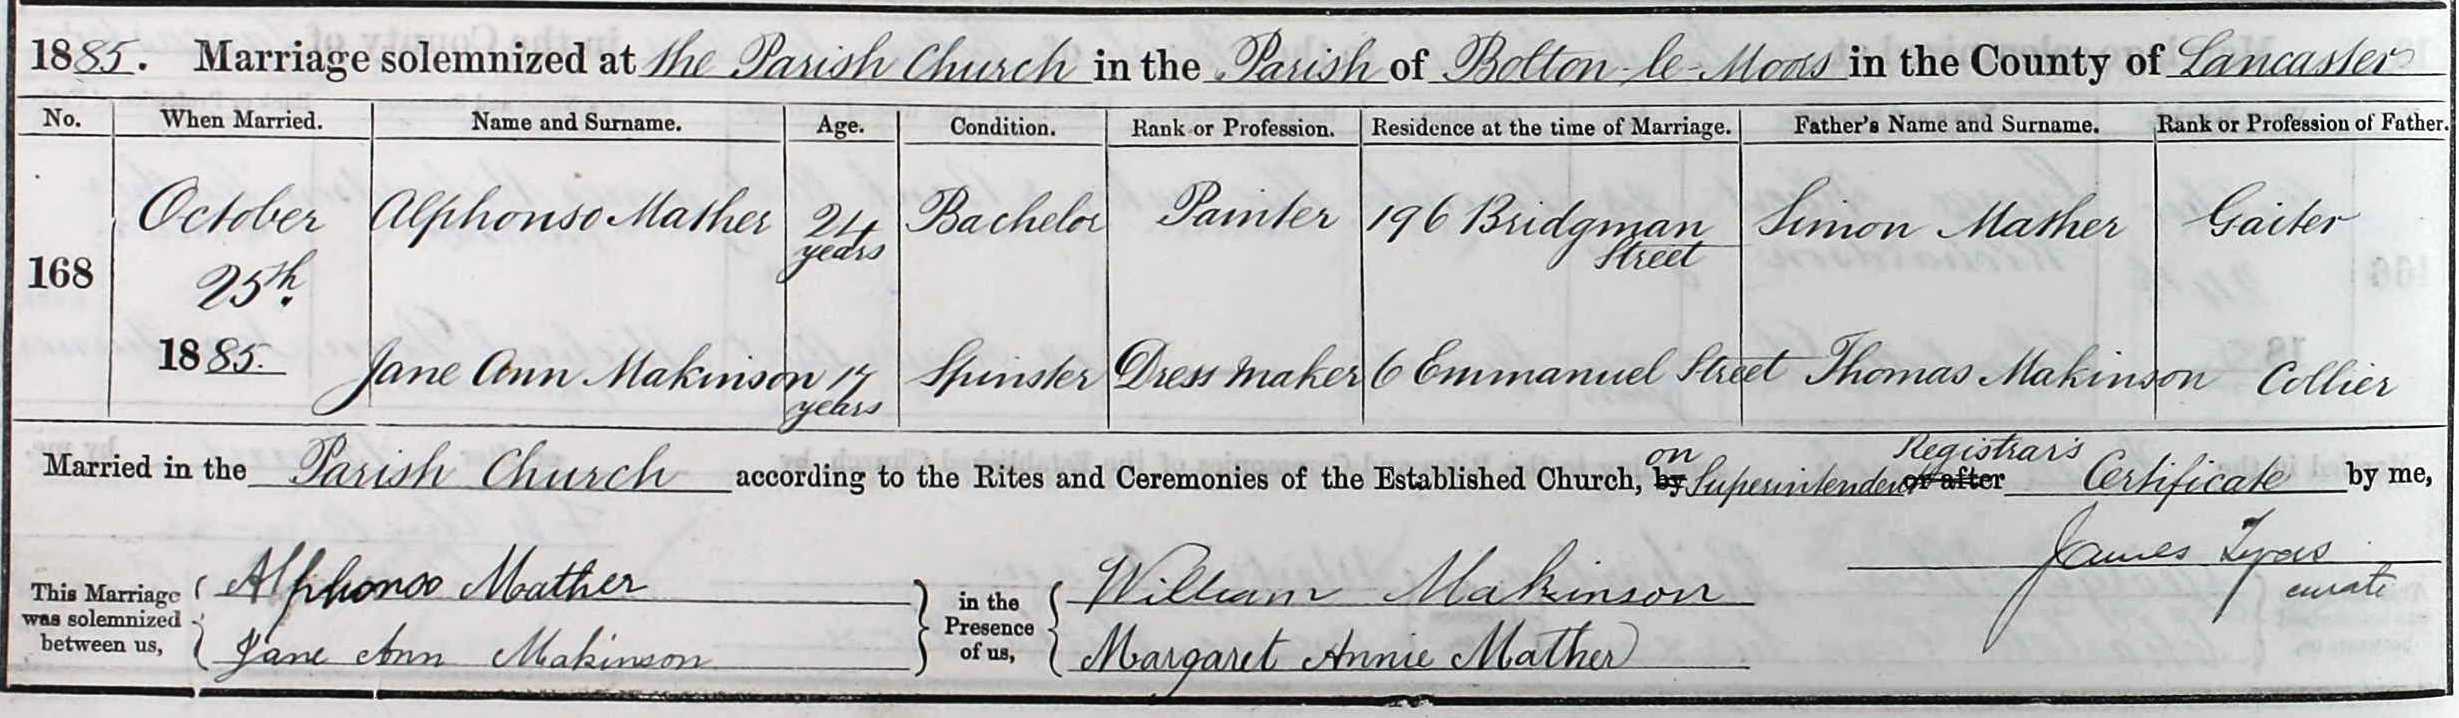 1885. Marriage solemnized at the Parish Church in the Parish of Bolton-le-Moors in the County of Lancaster
No. When Married. Name and Surname. Age. Condition. Rank or Profession. Residence at the time of Marriage. Father's Name and Surname. Rank or Profession of Father.
168 October 25th. 1885.
Alphonso Mather 24 years Bachelor Painter 196 Bridgman Street Simon Mather Gaiter
Jane Ann Makinson 17 years Spinster Dress maker 6 Emmanuel Street Thomas Makinson Collier
Married in the Parish Church according to the Rites and Ceremonies of the Established Church, by on Superintendent or after Registrar's Certificate by me,
James Lyons
curate
This Marriage was solemnized between us,
Alphonso Mather
Jane Ann Makinson
in the Presence of us,
William Makinson
Margaret Annie Mather